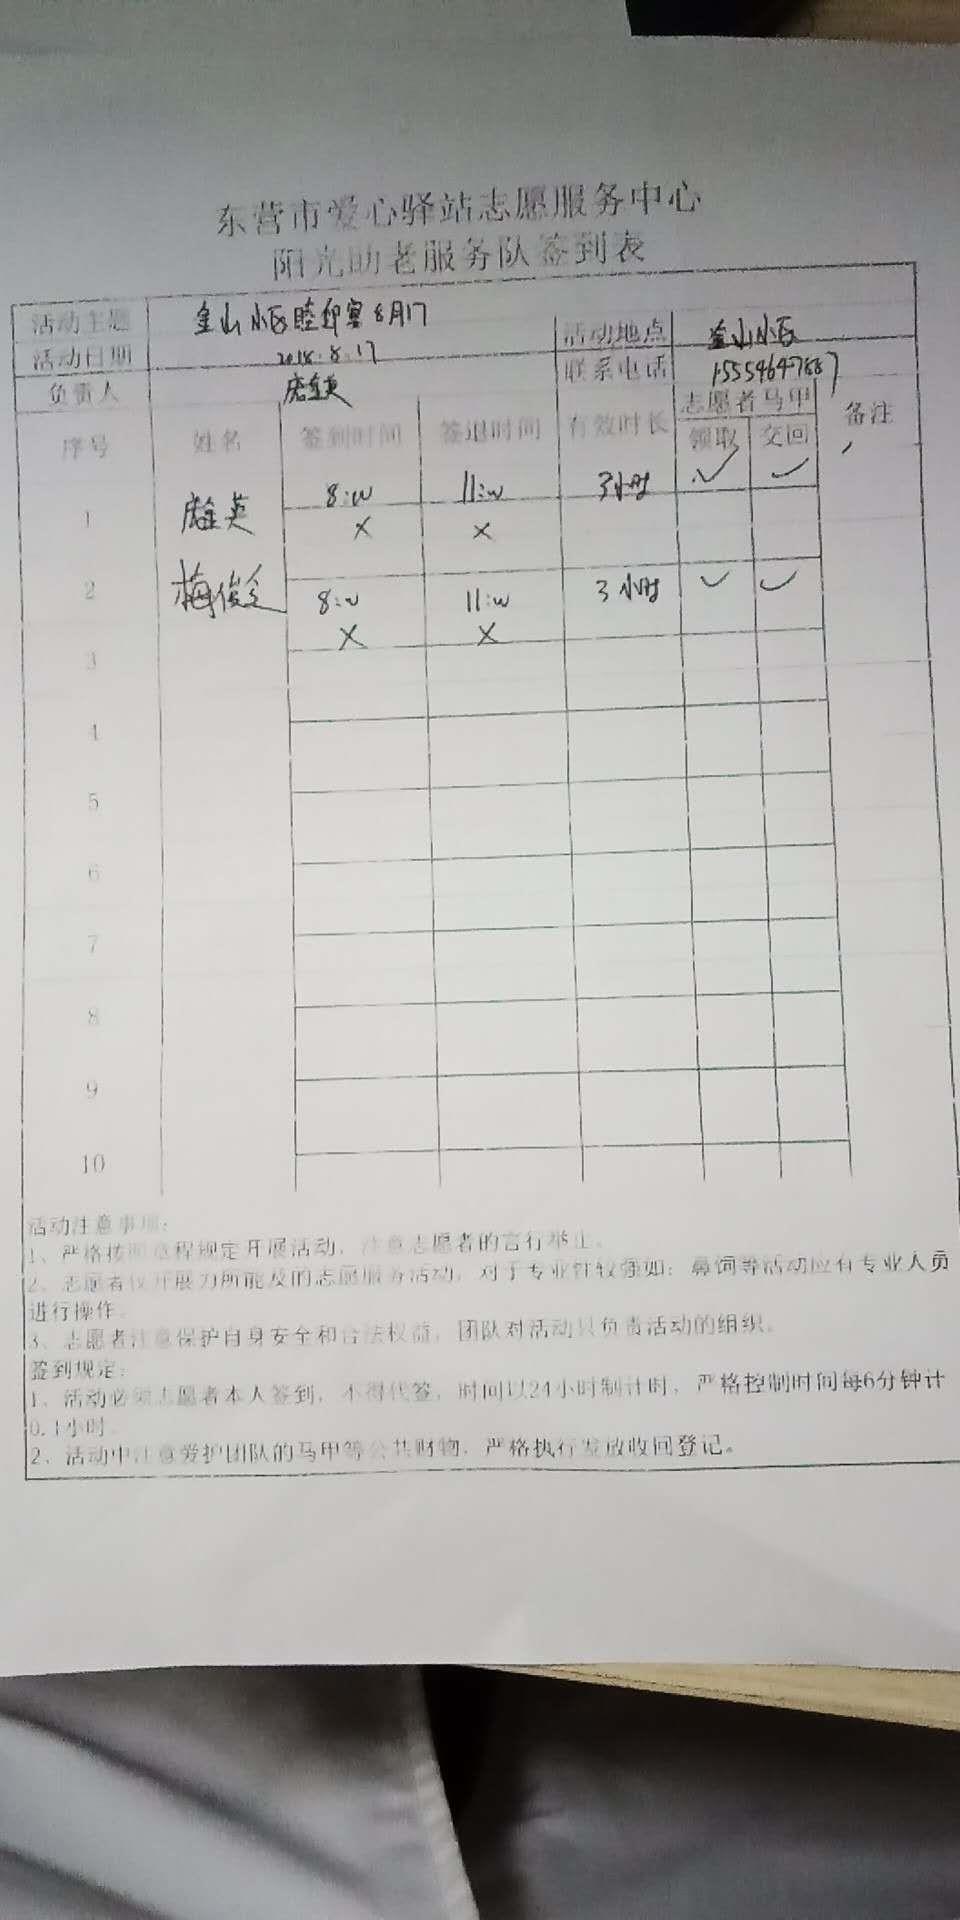 东营市爱心驿站志愿服务中心
阳光助老服务队签到表
活动主题 金山小区睦邻室8月17 活动地点 金山小区
活动日期 2018.8.17 联系电话
负责人 志愿者马甲 备注
序号 姓名 签到时间 签退时间 有效时长 领取 交回
1 8:00 11:00 3小时 ✓ ✓
× ×
2 梅俊 8:00 11:00 3小时 ✓ ✓
× ×
3
4
5
6
7
8
9
10
活动注意事项:
1、严格按照章程规定开展活动，注意志愿者的言行举止。
2、志愿者仅开展力所能及的志愿服务活动，对于专业性较强如：鼻饲等活动应有专业人员
进行操作。
3、志愿者注意保护自身安全和合法权益，团队对活动只负责活动的组织。
签到规定:
1、活动必须志愿者本人签到，不得代签，时间以24小时制计时，严格控制时间每6分钟计
0.1小时。
2、活动中注意爱护团队的马甲等公共财物，严格执行发放收回登记。